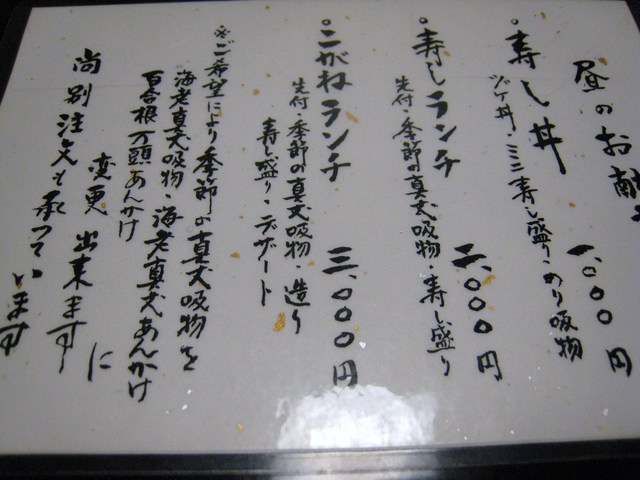 昼のお献
・寿し丼 一、〇〇〇円
ヅケ丼・ミニ寿し盛り・のり吸物
・寿しランチ 二、〇〇〇円
先付・季節の真丈吸物・寿し盛り
・こがねランチ 三、〇〇〇円
先付・季節の真丈吸物・造り
寿し盛り・デザート
※ご希望により季節の真丈吸物を
海老真丈吸物・海老真丈あんかけ
百合根万頭あんかけ に
変更出来ます
尚別注文も承っています